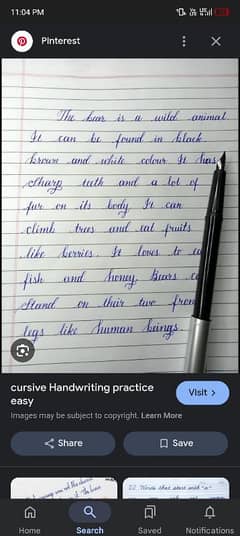 11:04 PM
Pinterest
The bear is a wild animal
It can be found in black
brown and white colour It has
sharp teeth and a lot of
fur on its body It can
climb trees and eat fruits
like berries. It loves to ea
fish and honey. Bears ca
stand on their two fron
legs like human beings.
cursive Handwriting practice
easy
Visit >
Images may be subject to copyright. Learn More
Share
Save
22. Words that start with "a"
Home
Search
Saved
Notifications